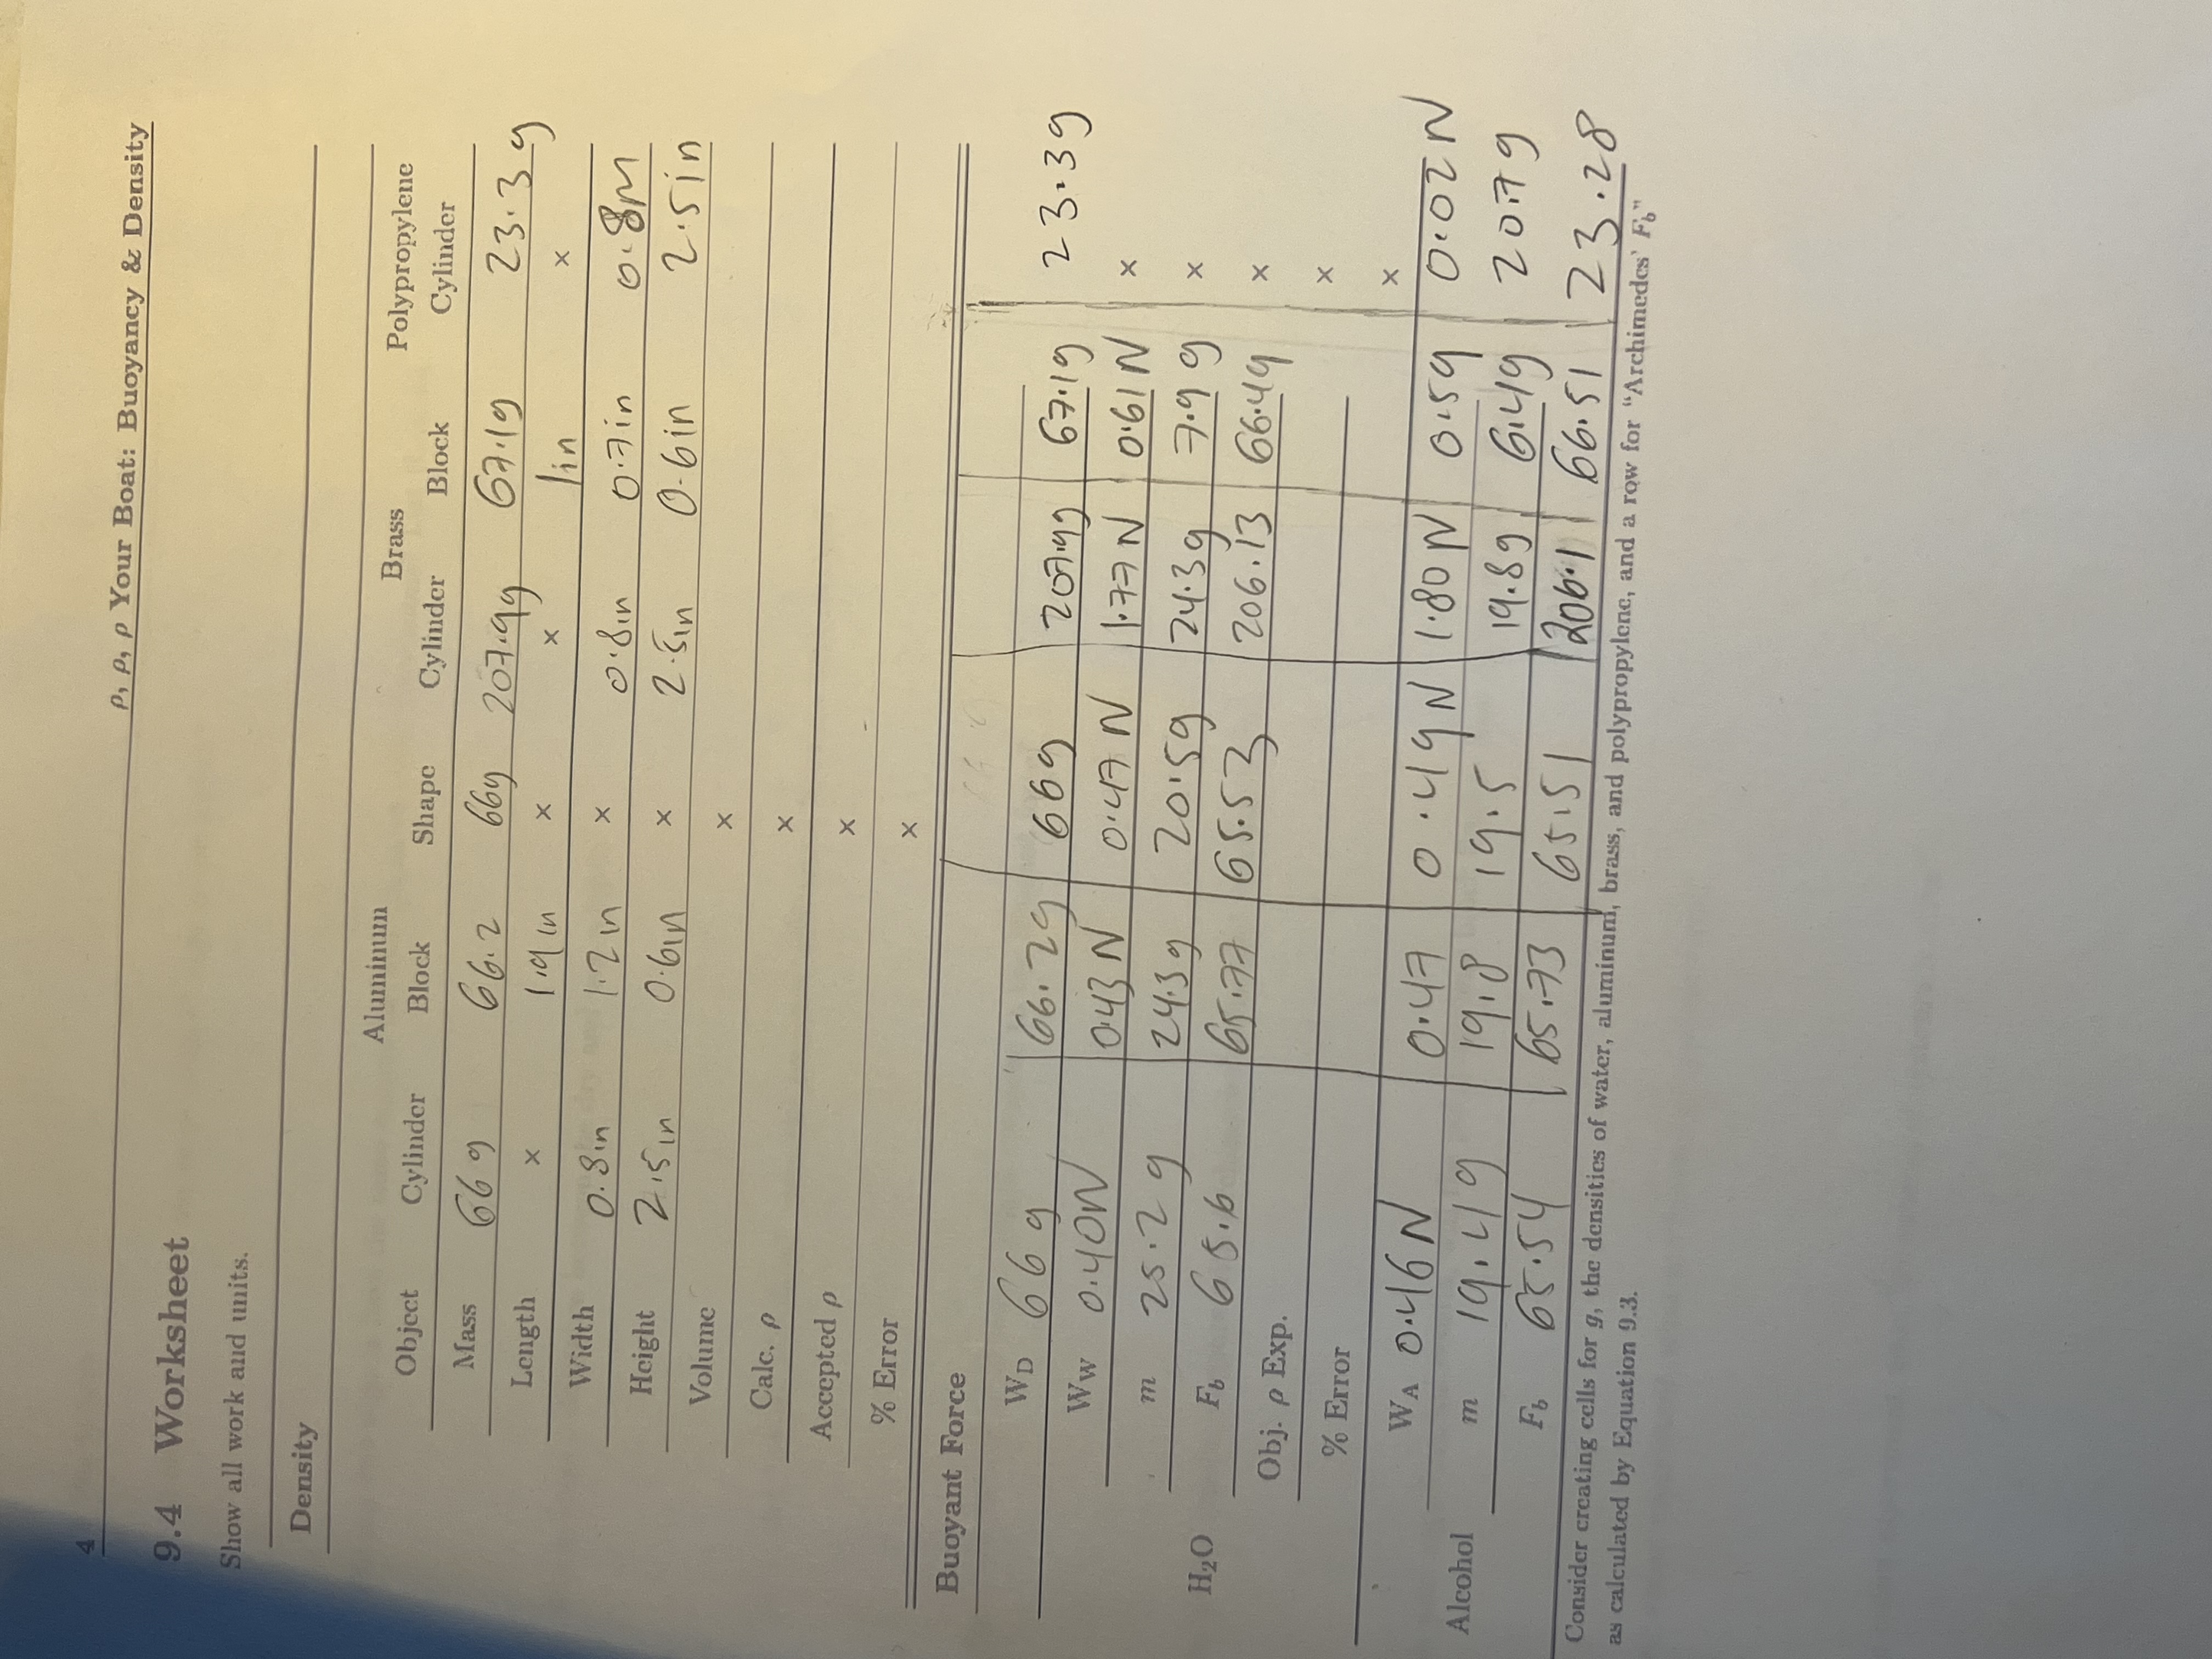 4
ρ, ρ, ρ Your Boat: Buoyancy & Density
9.4 Worksheet
Show all work and units.
Density
Aluminum Brass Polypropylene
Object Cylinder Block Shape Cylinder Block Cylinder
Mass 66g 66.2 66g 207.9g 67.1g 23.3g
Length × 1.9in × × 1in ×
Width 0.8in 1.2in × 0.8in 0.7in
Height 2.5in 0.6in × 2.5in 0.6in 2.5in
Volume ×
Calc. ρ ×
Accepted ρ ×
% Error ×
Buoyant Force
W_D 66g 66.2g 66g 207.9g 67.1g 23.3g
W_W 0.40N 0.43N 0.47N 1.77N 0.61N ×
H₂O
m 25.2g 24.3g 20.5g 24.3g 7.9g ×
F_b 65.6 65.77 65.53 206.13 66.49 ×
Obj. ρ Exp. ×
% Error ×
W_A 0.46N 0.47 0.49N 1.80N 0.59 0.02N
Alcohol
m 19.4g 19.8 19.5 19.8g 6.4g 20.7g
F_b 65.54 65.73 65.51 206.1 66.51 23.28
Consider creating cells for g, the densities of water, aluminum, brass, and polypropylene, and a row for "Archimedes' F_b"
as calculated by Equation 9.3.